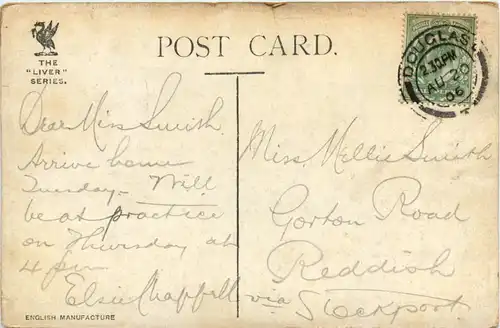 THE
"LIVER"
SERIES.
POST CARD.
DOUGLAS
2.30PM
AU 20
06
Dear Miss Smith
Arrive home
Tuesday. Will
be at practice
on Thursday at
4 pm
Elsie Chappell
Miss Nellie Smith
Gorton Road
Reddish
via Stockport
ENGLISH MANUFACTURE